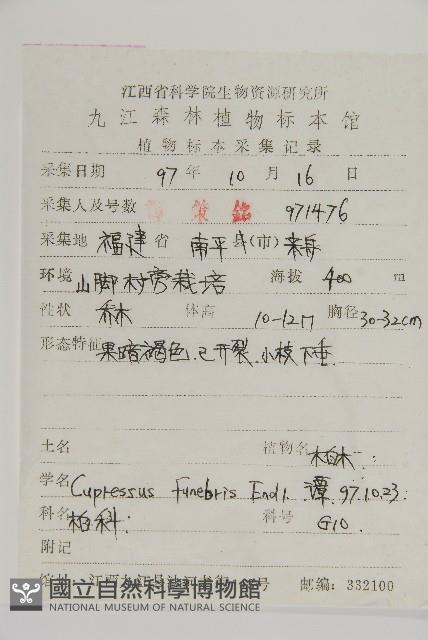 江西省科学院生物资源研究所
九江森林植物标本馆
植物标本采集记录
采集日期 97 年 10 月 16 日
采集人及号数 谭策铭 971476
采集地 福建 省 南平 县(市) 来舟
环境 山脚村旁栽培 海拔 400 m
性状 乔木 体高 10-12m 胸径 30-32cm
形态特征 果暗褐色.已开裂.小枝下垂
土名 植物名 柏木
学名 Cupressus Funebris Endl. 谭 97.10.23.
科名 柏科 科号 G10
附记
馆址:江西九江县沙河 号 邮编: 332100
國立自然科學博物館
NATIONAL MUSEUM OF NATURAL SCIENCE